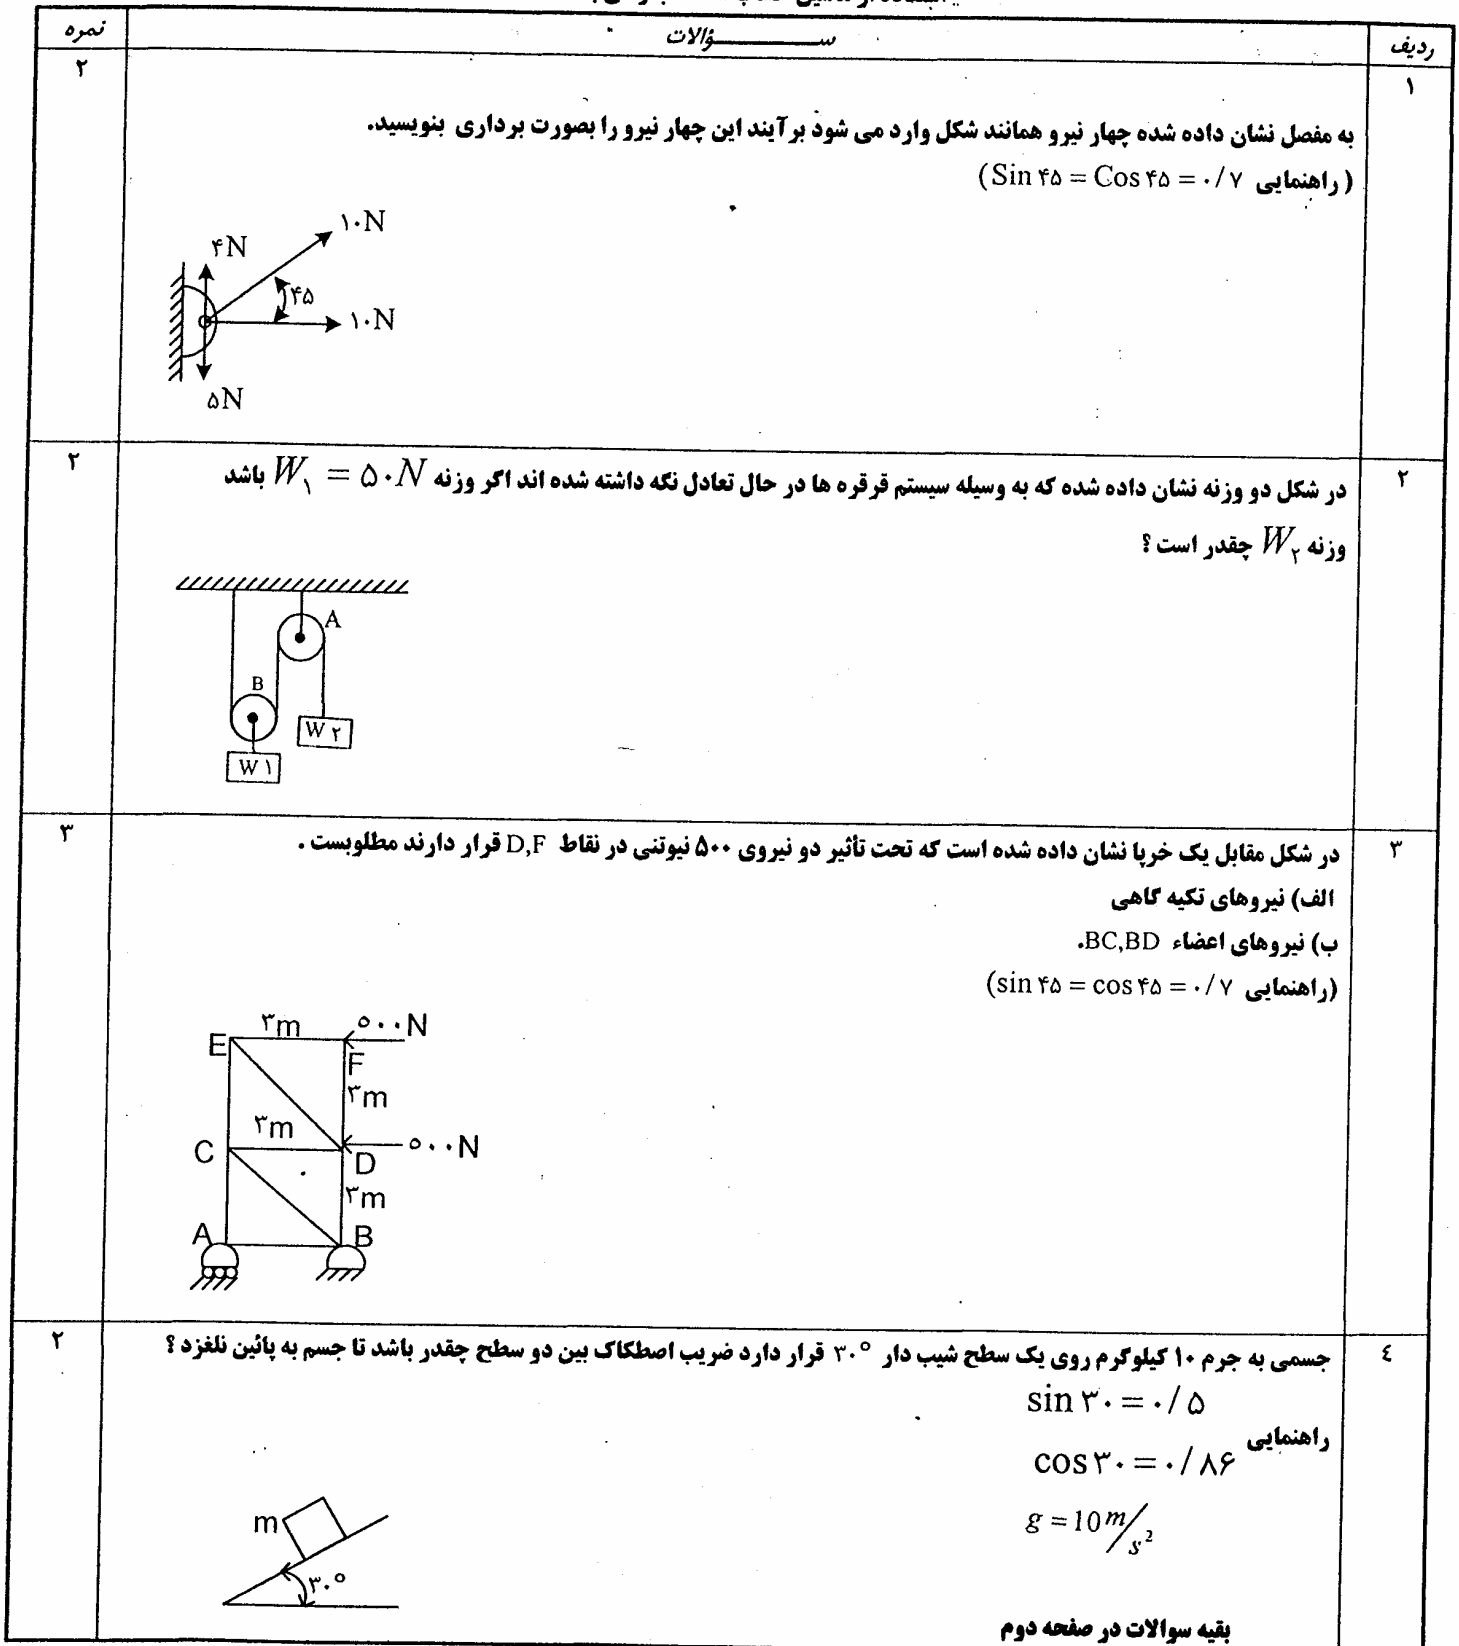 ردیف
ســـــــؤالات
نمره
۱
۲
به مفصل نشان داده شده چهار نیرو همانند شکل وارد می شود برآیند این چهار نیرو را بصورت برداری بنویسید.
( راهنمایی Sin ۴۵ = Cos ۴۵ = ۰/۷)
۱۰N
۴N
۴۵
۱۰N
۵N
۲
۲
در شکل دو وزنه نشان داده شده که به وسیله سیستم قرقره ها در حال تعادل نگه داشته شده اند اگر وزنه W۱ = ۵۰N باشد
وزنه W۲ چقدر است ؟
A
B
W ۲
W ۱
۳
۳
در شکل مقابل یک خرپا نشان داده شده است که تحت تأثیر دو نیروی ۵۰۰ نیوتنی در نقاط D,F قرار دارند مطلوبست .
الف) نیروهای تکیه گاهی
ب) نیروهای اعضاء BC,BD.
(راهنمایی sin ۴۵ = cos ۴۵ = ۰/۷)
۳m
۵۰۰N
E
F
۳m
۳m
۵۰۰N
C
D
۳m
A
B
٤
۲
جسمی به جرم ۱۰ کیلوگرم روی یک سطح شیب دار ۳۰° قرار دارد ضریب اصطکاک بین دو سطح چقدر باشد تا جسم به پائین نلغزد ؟
sin ۳۰ = ۰/۵
راهنمایی
cos ۳۰ = ۰/۸۶
g = 10 m/s²
m
۳۰°
بقیه سوالات در صفحه دوم